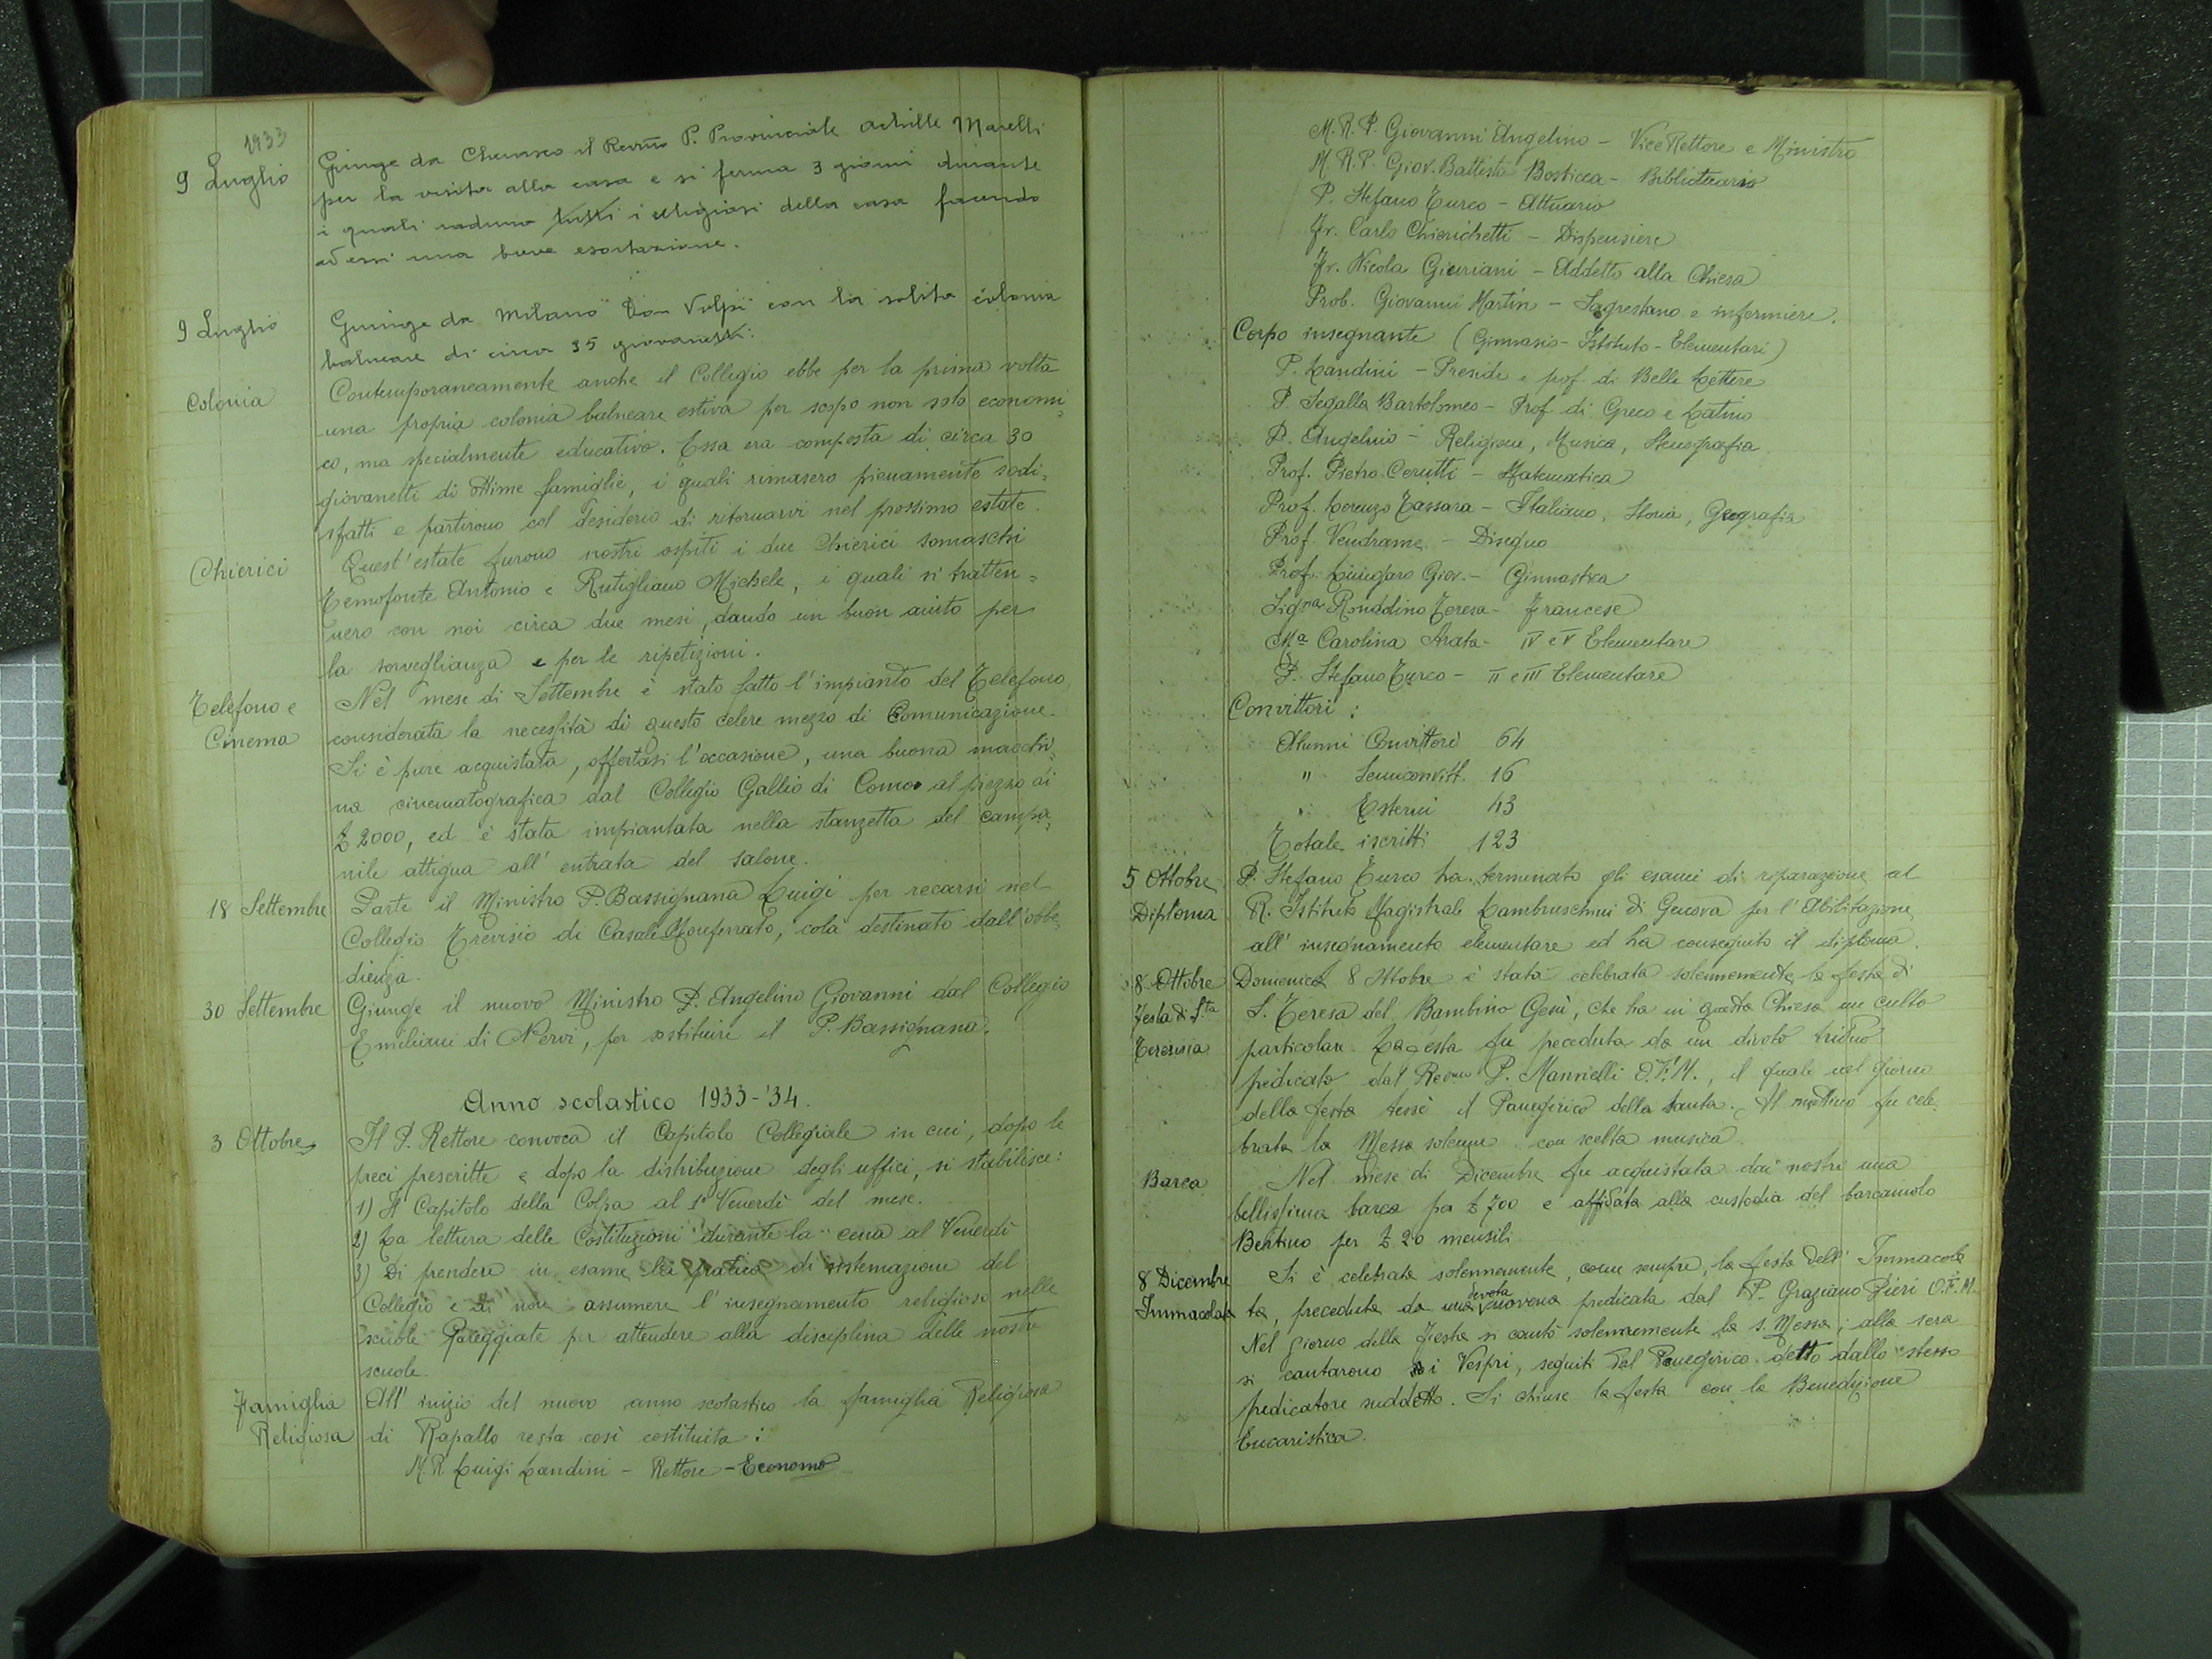 1933
9 Luglio Giunge da Cherasco il Rev.mo P. Provinciale Achille Marelli
per la visita alla casa e si ferma 3 giorni durante
i quali raduna tutti i religiosi della casa facendo
ad essi una breve esortazione.
9 Luglio Giunge da Milano Don Volpi con la solita colonia
balneare di circa 35 giovanetti.
Colonia Contemporaneamente anche il Collegio ebbe per la prima volta
una propria colonia balneare estiva per scopo non solo economi=
co, ma specialmente educativo. Essa era composta di circa 30
giovanetti di ottime famiglie, i quali rimasero pienamente sodi=
sfatti e partirono col desiderio di ritornarvi nel prossimo estate.
Chierici Quest'estate furono nostri ospiti i due Chierici somaschi
Temofonte Antonio e Rutigliano Michele, i quali si tratten=
nero con noi circa due mesi, dando un buon aiuto per
la sorveglianza e per le ripetizioni.
Telefono e Nel mese di Settembre è stato fatto l'impianto del Telefono,
Cinema considerata la necessità di questo celere mezzo di Comunicazione.
Si è pure acquistata, offertasi l'occasione, una buona macchi=
na cinematografica dal Collegio Gallio di Como al prezzo di
£ 2000, ed è stata impiantata nella stanzetta del campa=
nile attigua all'entrata del salone.
18 Settembre Parte il Ministro P. Bassignana Luigi per recarsi nel
Collegio Trevisio di Casale Monferrato, colà destinato dall'obbe=
dienza.
30 Settembre Giunge il nuovo Ministro P. Angelino Giovanni dal Collegio
Emiliani di Nervi, per sostituire il P. Bassignana.
Anno scolastico 1933-'34.
3 Ottobre Il P. Rettore convoca il Capitolo Collegiale in cui, dopo le
preci prescritte e dopo la distribuzione degli uffici, si stabilisce:
1) Il Capitolo della Colpa al 1° Venerdì del mese.
2) La lettura delle Costituzioni durante la cena al Venerdì
3) Di prendere in esame la pratica di sistemazione del
Collegio e di non assumere l'insegnamento religioso nelle
scuole Pareggiate per attendere alla disciplina delle nostre
scuole.
Famiglia All'inizio del nuovo anno scolastico la famiglia Religiosa
Religiosa di Rapallo resta così costituita:
M.R. Luigi Landini - Rettore - Economo
M.R.P. Giovanni Angelino - Vice Rettore e Ministro
M.R.P. Giov. Battista Bosticca - Bibliotecario
P. Stefano Turco - Attuario
Fr. Carlo Chierichetti - Dispensiere
Fr. Nicola Giuriani - Addetto alla Chiesa
Prob. Giovanni Martin - Sagrestano e infermiere.
Corpo insegnante (Ginnasio - Istituto - Elementari)
P. Landini - Preside e prof. di Belle Lettere
P. Segalla Bartolomeo - Prof. di Greco e Latino
P. Angelino - Religione, Musica, Stenografia
Prof. Pietro Cerutti - Matematica
Prof. Lorenzo Tassara - Italiano, Storia, Geografia
Prof. Vendrame - Disegno
Prof. Giov. - Ginnastica
Sig.na Teresa - Francese
M.a Carolina Arata - IV e V Elementare
P. Stefano Turco - II e III Elementare
Convittori:
Alunni Convittori 64
" Semiconvitt. 16
" Esterni 43
Totale iscritti 123
5 Ottobre P. Stefano Turco ha terminato gli esami di riparazione al
Diploma R. Istituto Magistrale Lambruschini di Genova per l'Abilitazione
all'insegnamento elementare ed ha conseguito il diploma.
8 Ottobre Domenica 8 Ottobre è stata celebrata solennemente la festa di
Festa di S.ta S. Teresa del Bambino Gesù, che ha in questa Chiesa un culto
Teresina particolare. La festa fu preceduta da un divoto triduo
predicato dal Rev.mo P. Mannelli O.F.M., il quale nel giorno
della festa tessè il Panegirico della Santa. Al mattino fu cele=
brata la Messa solenne con scelta musica.
Barca Nel mese di Dicembre fu acquistata dai nostri una
bellissima barca per £ 700 e affidata alla custodia del barcaiuolo
per £ 20 mensili
8 Dicembre Si è celebrata solennemente, come sempre, la festa dell'Immacola
Immacolata ta, preceduta da una devota novena predicata dal P. Graziano Pieri O.F.M.
Nel giorno della festa si cantò solennemente la S. Messa; alla sera
si cantarono i Vespri, seguiti dal Panegirico detto dallo stesso
predicatore suddetto. Si chiuse la festa con la Benedizione
Eucaristica.